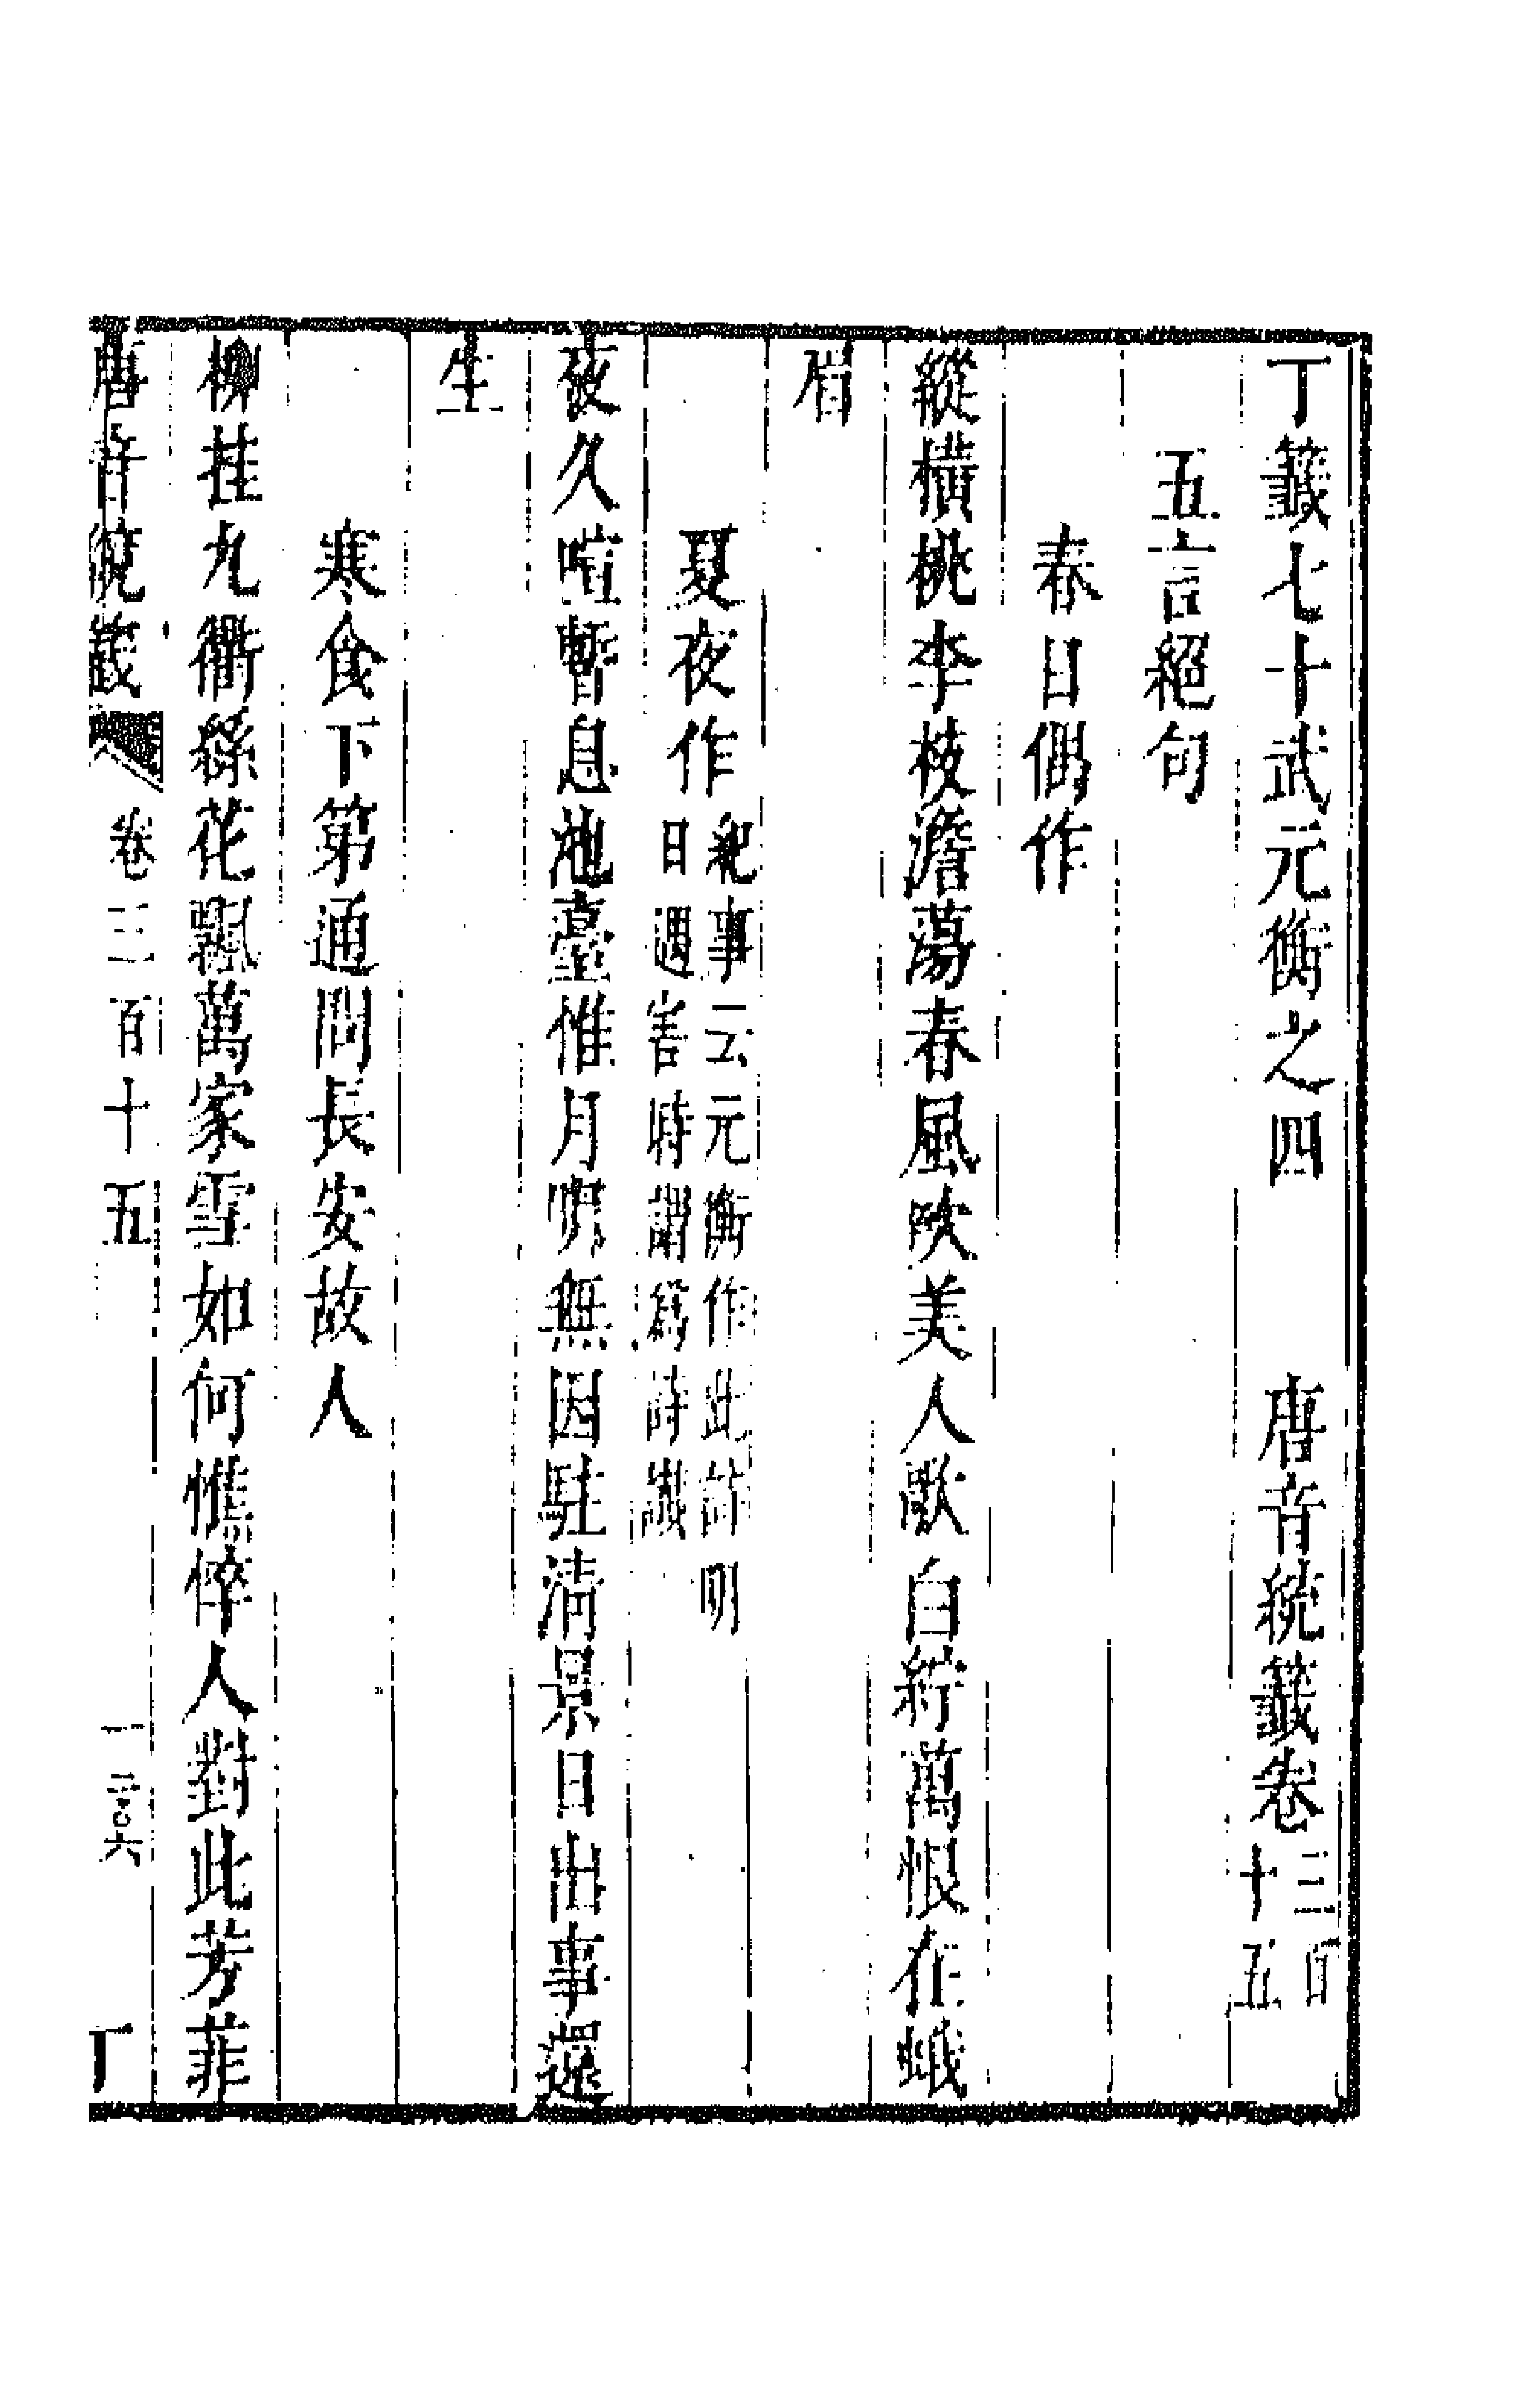 丁籖七十武元衡之四　唐音統籖卷三百十五
五言絕句
春日偶作
縱橫桃李枝澹蕩春風吹美人歌白紵萬恨在蛾
眉
夏夜作紀事云元衡作此詩明日遇害時謂爲詩讖
夜久喧暫息池臺惟月明無因駐淸景日出事還
生
寒食下第通問長安故人
柳挂九衢絲花飄萬家雪如何憔倅人對此芳菲
唐音統籖　卷三百十五　一　丁